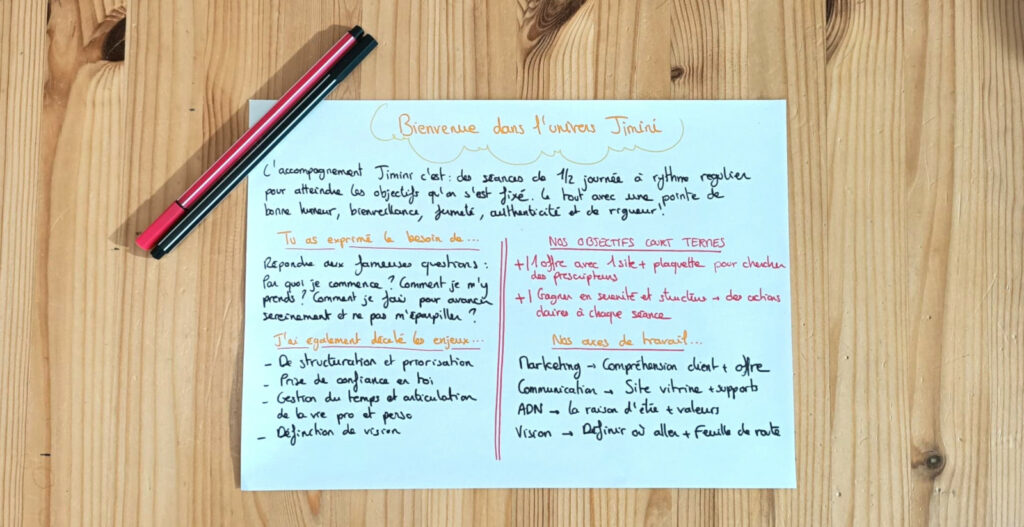 Bienvenue dans l'univers Jimini
L'accompagnement Jimini c'est : des séances de 1/2 journée à rythme regulier
pour atteindre les objectifs qu'on s'est fixé. Le tout avec une pointe de
bonne humeur, bienveillance, fermeté, authenticité et de rigueur!
Tu as exprimé le besoin de...
Répondre aux fameuses questions :
Par quoi je commence ? Comment je m'y
prends ? Comment je fais pour avancer
sereinement et ne pas m'éparpiller ?
J'ai également décelé les enjeux...
- De structuration et priorisation
- Prise de confiance en toi
- Gestion du temps et articulation
de la vie pro et perso
- Définition de vision
NOS OBJECTIFS COURT TERMES
+/ 1 offre avec 1 site + plaquette pour chercher
des prescripteurs
+/ Gagner en serenité et structure → des actions
claires à chaque séance
Nos axes de travail...
Marketing → Compréhension client + offre
Communication → Site vitrine + supports
ADN → la raison d'être + valeurs
Vision → Définir où aller + Feuille de route